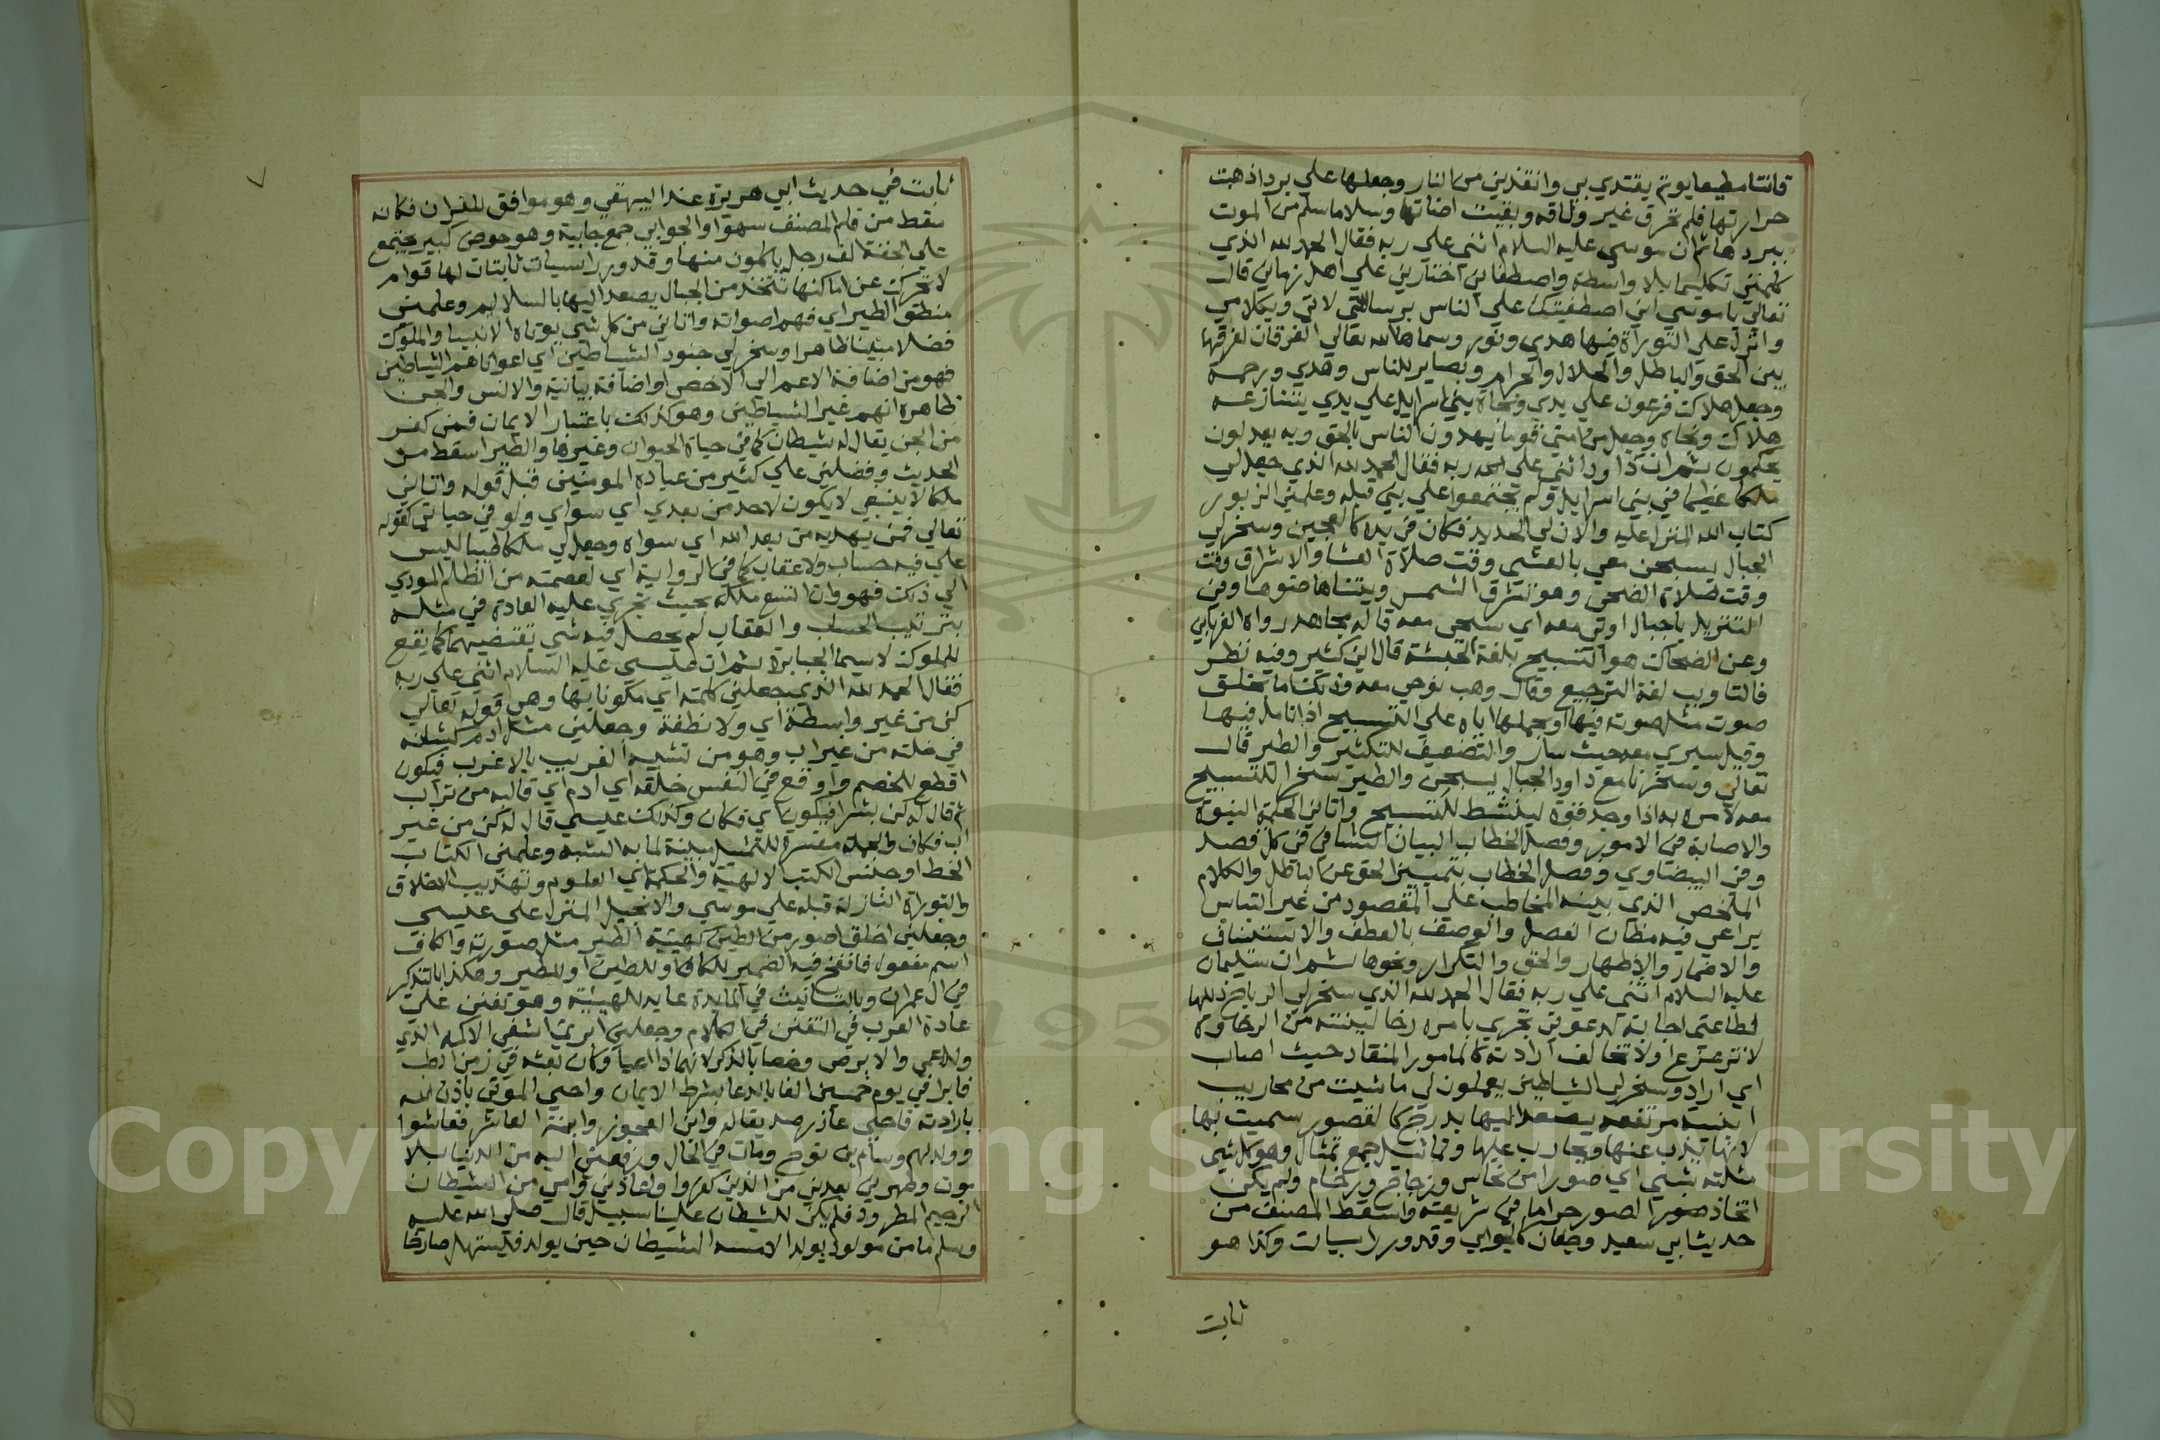 قانتا مطيعا يوتم يقتدي بي وانقذني من النار وجعلها علي بردا ذهبت
حرارتها فلم تحرق غير وثاقه وبقيت اضاتها وسلاما سلم من الموت
ببردها ثم ان موسي عليه السلام اثني علي ربه فقال الحمد لله الذي
كلمني تكليما بلا واسطة واصطفاني اختارني علي اهل زماني قال
تعالي يا موسي اني اصطفيتك علي الناس برسالتي وبكلامي
وانزل علي التوراة فيها هدي ونور وسماها الله تعالي الفرقان لفرقها
بين الحق والباطل والحلال والحرام وبصاير للناس وهدي ورحمة
وجعل هلاك فرعون علي يدي ونجاة بني اسرايل علي يدي يتنازعه
هلاك ونجاه وجعل من امتي قوما يهدون الناس بالحق وبه يعدلون
يحكمون ثم ان داود اثني علي ربه فقال الحمد لله الذي جعل لي
ملكا عظيما في بني اسرايل ولم يجتمعوا علي نبي قبله وعلمني الزبور
كتاب الله المنزل عليه والان لي الحديد فكان في يده كالعجين وسخر لي
الجبال يسبحن معي بالعشي وقت صلاة العشا والاشراق وقت
وقت صلاة الضحي وهو تشرق الشمس ويتناها ضوها وفي
التنزيل يا جبال اوبي معه اي سبحي معه قاله مجاهد رواه الفريابي
وعن الضحاك هو التسبيح بلغة الحبشة قال ابن كثير وفيه نظر
فالتاويب لغة الترجيع وقال وهب نوحي معه وذلك اما بخلق
صوت مثل صوته فيها او بحملها اياه علي التسبيح اذا تامل فيها
وقيل سيري معه حيث سار والتضعيف للتكثير والطير قال
تعالي وسخرنا مع داود الجبال يسبحن والطير سخر التسبيح
معه لامره به اذا وجد فترة لينشط للتسبيح واتاني الحكمة النبوة
والاصابة في الامور وفصل الخطاب البيان الشافي في كل فصد
وفي البيضاوي وفصل الخطاب بتمييز الحق عن الباطل والكلام
الملخص الذي بينه المخاطب علي المقصود من غير التباس
يراعي فيه مظان الفصل والوصف بالعطف والاستيناف
والاضمار والاظهار والحذف والتكرار ونحوها ثم ان سليمان
عليه السلام اثني علي ربه فقال الحمد لله الذي سخر لي الرياح ذللها
لطاعتي اجابة لدعوتي تجري بامره رخا لينة من الرخاوة
لا تزعزع او لا تخالف ارادته كالمامور المنقاد حيث اصاب
اي اراد وسخر لي الشياطين يعملون لي ما شيت من محاريب
ابنية مرتفعة يصعد اليها بدرج كالقصور سميت بها
لانها يذب عنها ويحارب عليها وتماثيل جمع تمثال وهو كل شي
مثلته بشي اي صورا من نحاس وزجاج ورخام ولم يكن
اتخاذ صورها الصور حراما في شريعته واسقط المصنف من
حديث ابي سعيد وجفان كالجوابي وقدور راسيات وكذا هو
ثابت
ثابت في حديث ابي هريرة عند البيهقي وهو موافق للقران فكانه
سقط من قلم المصنف سهوا والجوابي جمع جابية وهو حوض كبير يجتمع
علي الجفنة الف رجل ياكلون منها وقدور راسيات ثابتات لها قوايم
لا تحرك عن اماكنها تتخذ من الجبال يصعد اليها بالسلالم وعلمني
منطق الطير اي فهم اصواته واتاني من كل شي يوتاه الانبيا والملوك
فضلا مبينا ظاهرا وسخر لي جنود الشياطين اي اعوانا هم الشياطين
فهو من اضافة الاعم الي الاخص او اضافة بيانية والانس والجن
ظاهره انهم غير الشياطين وهو كذلك باعتبار الايمان فمن كفر
من الجن يقال له شيطان كما في حياة الحيوان وغيرها والطير اسقط من
الحديث وفضلني علي كثير من عباده المومنين قبل قوله واتاني
ملكا لا ينبغي لا يكون لاحد من بعدي اي سواي ولو في حياتي كقوله
تعالي فمن يهديه من بعد الله اي سواه وجعل لي ملكا طيبا ليس
علي فيه حساب ولا عقاب كما في الرواية اي لعصمته من الظلم المودي
الي ذلك فهو وان اتسع ملكه بحيث تجري عليه العادة في مثله
بترتيب الحساب والعقاب لم يحصل فيه شي يقتضيهما كما يقع
للملوك لا سيما الجبابرة ثم ان عيسي عليه السلام اثني علي ربه
فقال الحمد لله الذي جعلني كلمته اي مكونا بها وهي قوله تعالي
كن من غير واسطة اي ولا نطفة وجعلني مثل ادم كشانه
في خلقه من غير اب وهو من تشبيه الغريب بالاغرب فيكون
اقطع للخصم واوقع في النفس خلقه اي ادم اي قالبه من تراب
ثم قال له كن بشرا فيكون اي فكان وكذلك عيسي قال له كن من غير
اب فكان والجملة مفسرة للتمثيل مبينة لما به الشبه وعلمني الكتاب
الخط او جنس الكتب الالهية والحكمة اي العلوم وتهذيب الاخلاق
والتوراة النازلة قبله علي موسي والانجيل المنزل علي عيسي
وجعلني اخلق اصور من الطين كهيئة الطير مثل صورته والكاف
اسم مفعول فانفخ فيه الضمير للكاف او للطين او للطير وهكذا بالتذكير
في ال عمران وبالتانيث في المايدة عايد للهيئة وهو تفنن علي
عادة العرب في التفنن في الكلام وجعلني ابري اشفي الاكمه الذي
ولد اعمي والابرص وخصا بالذكر لانهما دا اعيا وكان بعثه في زمن الطب
فابرا في يوم خمسين الفا بالدعا بشرط الايمان واحيي الموتي باذن الله
بارادته فاحيي عازر صديقا له وابن العجوز وابنة العاشر فعاشوا
وولد لهم وسام بن نوح ومات في الحال ورفعني اليه من الدنيا بلا
موت وطهرني بعدني من الذين كفروا واعاذني وامي من الشيطان
الرجيم المطرود فلم يكن للشيطان علينا سبيل قال صلي الله عليه
وسلم ما من مولود يولد الا مسه الشيطان حين يولد فيستهل صارخا